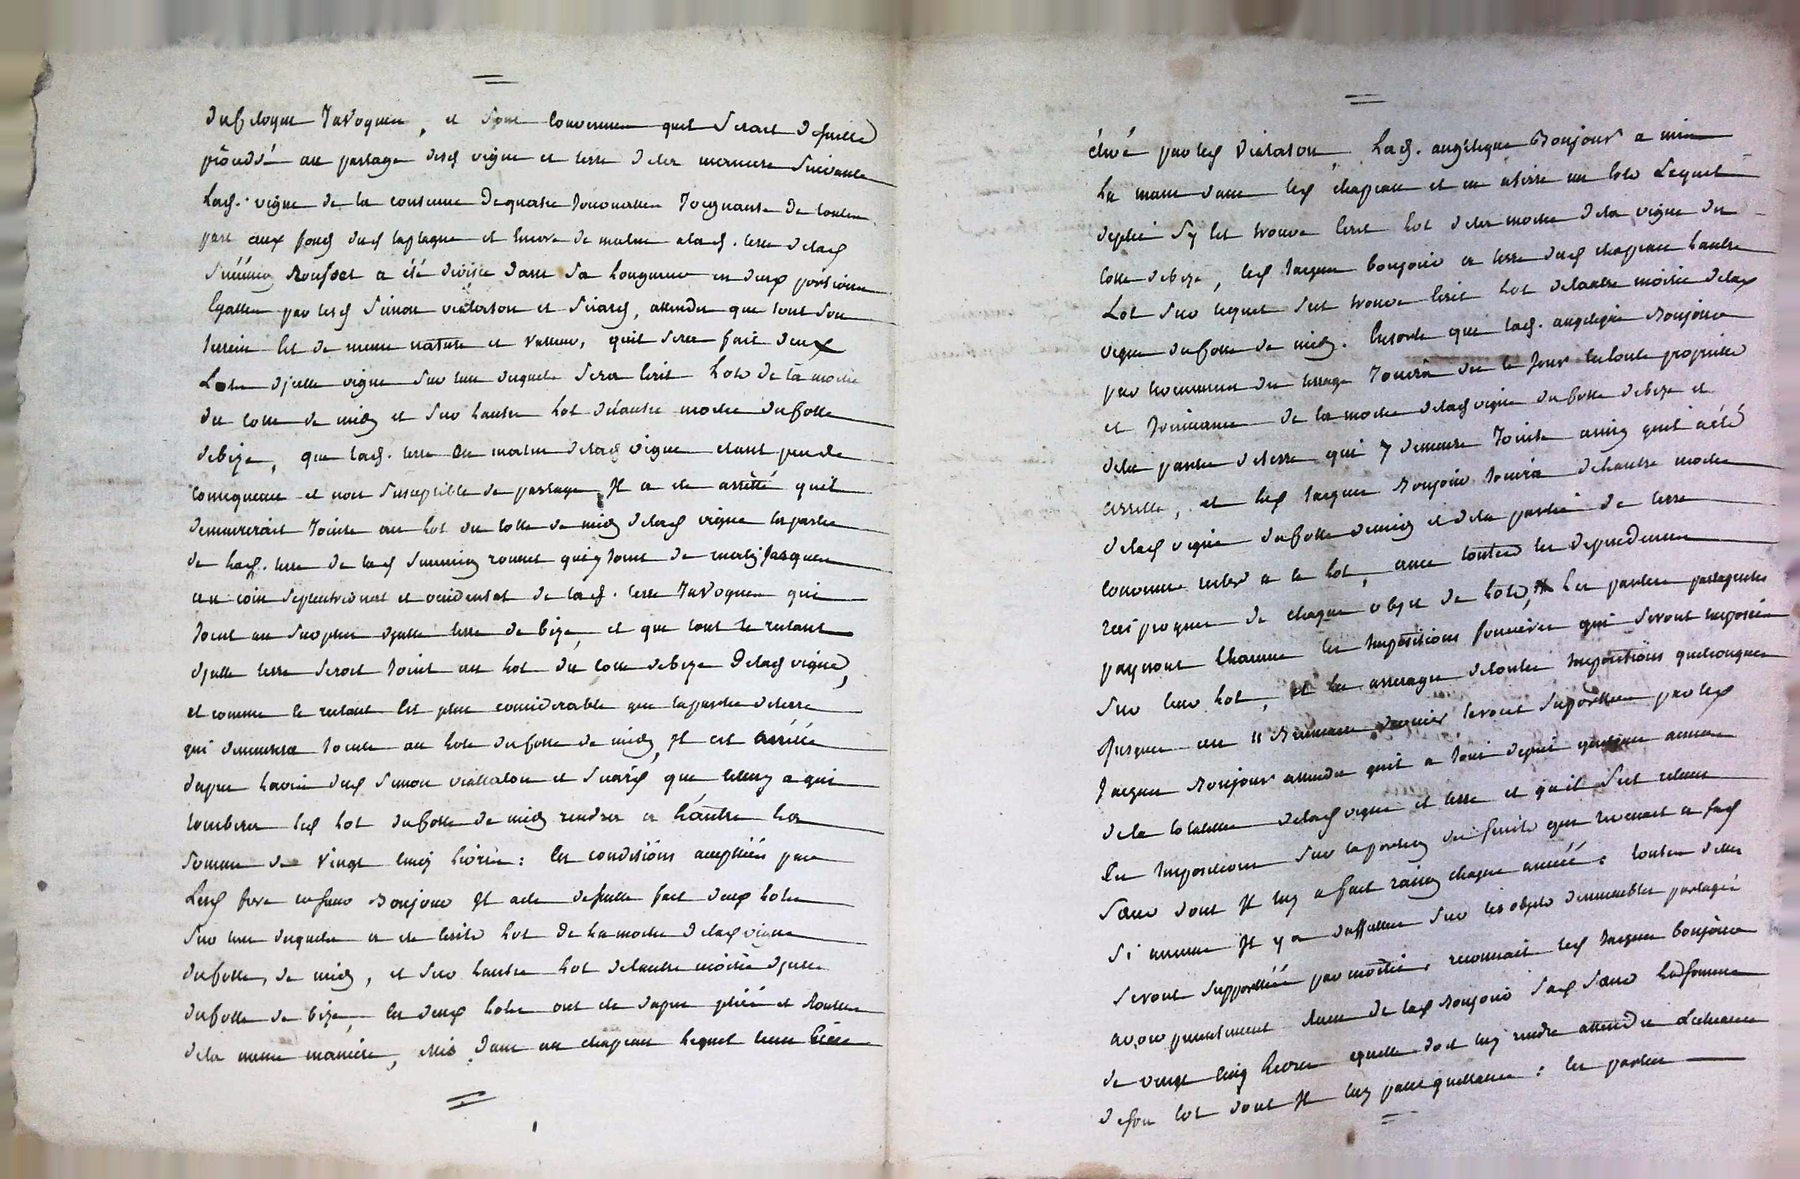 et sont convenues quil serait de suitte
procedé au partage desd vigne et terre de la maniere suivante
Lad. vigne de la contenue de quatre
part aux fonds dud et encore de matin a lad. terre de lad
Rousset a été divisée dans sa longueur en deux portions
Egalles par lesd Simon viataton et attendu que tout son
terrein est de meme nature et valleur, quil sera fait deux
Lots djcelle vigne sur lun duquels sera Ecrit Lot de la moitié
du cotté de midy et sur lautre lot de lautre moitié du cotté
de bize, que lad. terre au matin de lad vigne etant peu de
consequence et non susceptible de partage Jl a ete arretté quil
demeurerait Jointe au lot du cotté de midy de lad vigne la partie
de lad. terre de lad rousset qui y Joint de matin Jusques
au coin septentrional et occidental de lad. terre qui
Joint au surplus djcelle terre de bize, et que tout le restant
djcelle terre serait Joint au lot du cotté de bize de lad vigne,
et comme le restant Est plus considerable que la partie de terre
qui demeurera Jointe au lot du cotté de midy, Jl est arretté
dapres lavis dud Simon viataton et que celluy a qui
tombera led lot du cotté de midy rendra a lautre la
somme de vingt cinq livres : les conditions acceptées par
Lesd frere et sœur Bonjour Jl a ete de suitte fait deux lots
sur lun duquels a ete Ecrit lot de la moitié de lad vigne
du cotté de midy, et sur lautre lot de lautre moitié djcelle
du cotté de bize, les deux lots ont ete dapres pliés et Roullés
de la meme maniere, mis dans un chapeau lequel tenu
élevé par led viataton, Lad. angelique Bonjour a mis
La main dans led chapeau et en a tirré un lot Lequel
deplié sy Est trouvé Ecrit lot de la moitié de la vigne du
cotté de bize, led Jacques bonjour a tirré dud chapeau lautre
Lot sur lequel sest trouvé Ecrit lot de lautre moitié de lad
vigne du cotté de midy. Ensorte que lad. angelique Bonjour
par du tirrage Jouira des ce Jour en toute proprieté
et Jouissance de la moitié de lad vigne du cotté de bize et
de la partie de terre qui y demeure Jointe ainsy quil a été
arretté, et led Jacques Bonjour Jouira de lautre moitié
de lad vigne du cotté de midy et de la partie de terre
comme a ce lot, avec touttes les dependances
reciproques de chaque objet de lots, Les parties partagentes
payeront chacune les Impositions foncieres qui seront imposées
sur leur lot, et les arrerages de toutes Impositions quelconques
Jusques au 11 Brumaire dernier seront supportés par led
Jacques Bonjour attendu quil a Joui depuis quelques années
de la totalitté de lad vigne et terre et quil sest retenu
Les Impositions sur la portion du fruits qui revenait a sad
Sœur dont Jl luy a fait raison chaque année : toutes dettes
Si aucune Jl y a daffectées sur les objets dimmeubles partagés
seront supportées par moitié, reconnait led Jacques bonjour
avoir presentement Receu de lad Bonjour sad Sœur La somme
de vingt cinq livres quelle doit luy rendre attendu
de son lot dont Jl luy passe quittance : les parties